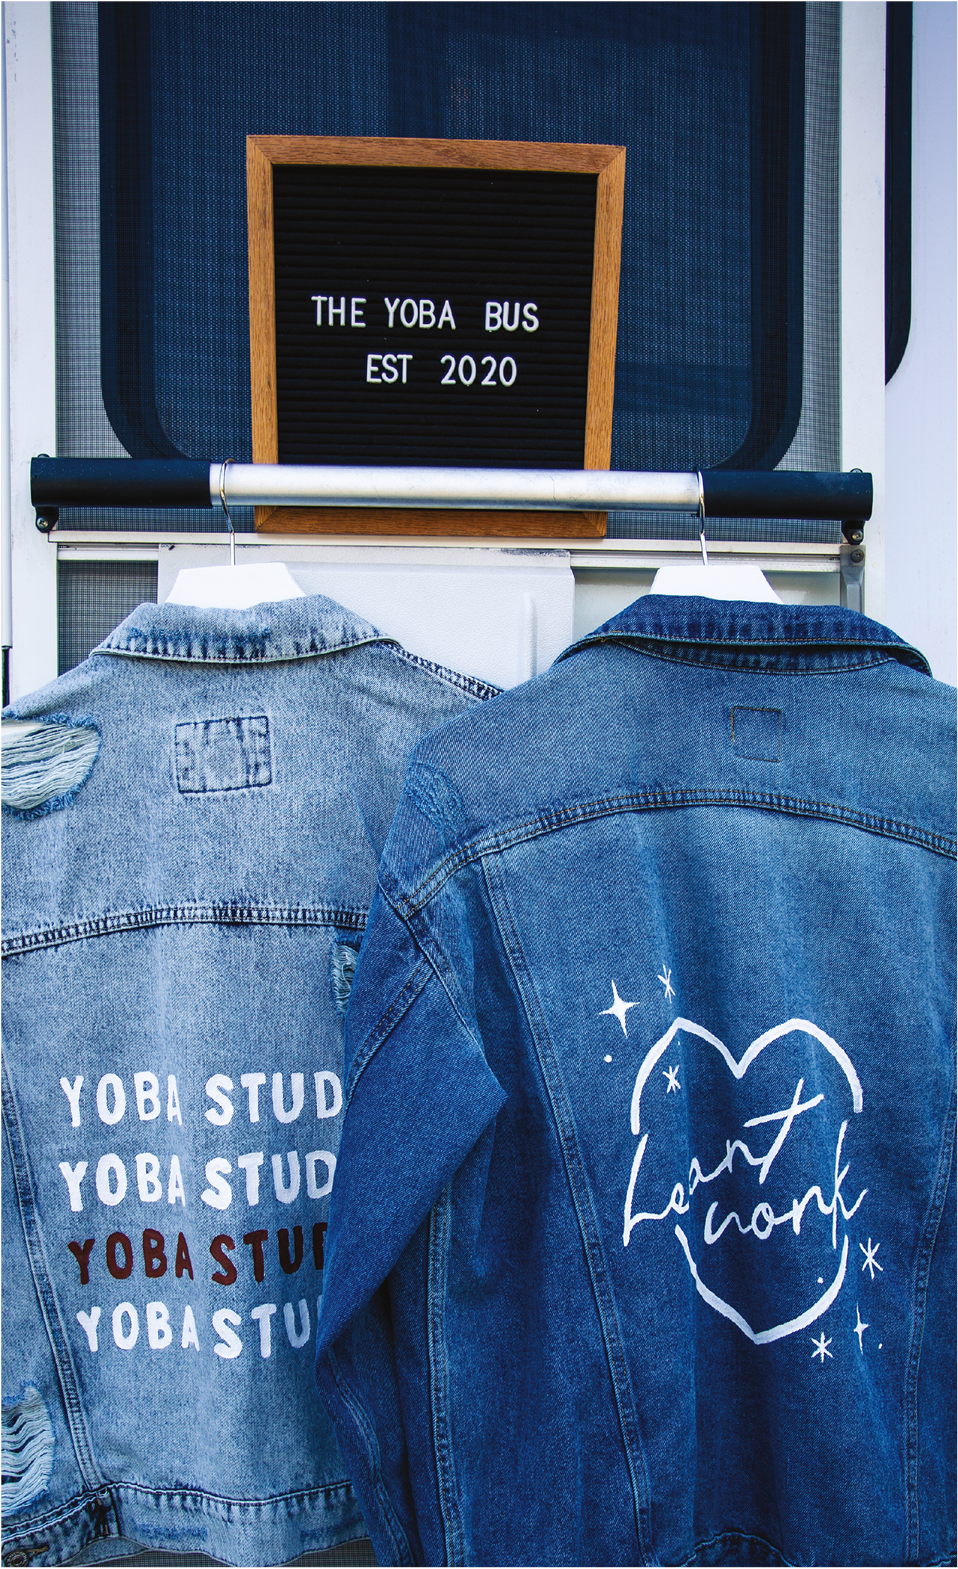 THE YOBA BUS
EST 2020
YOBA STUD
YOBA STUD
YOBA STU
YOBA STU
Heart
work